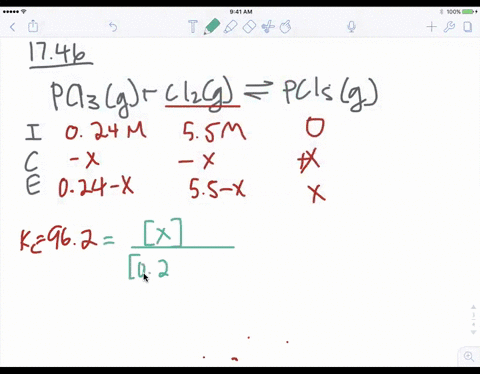 9:41 AM
17.46
PCl3(g) + Cl2(g) ⇌ PCl5(g)
I 0.24M 5.5M 0
C -x -x +x
E 0.24-x 5.5-x x
Kc=96.2 = [x]
[0.2